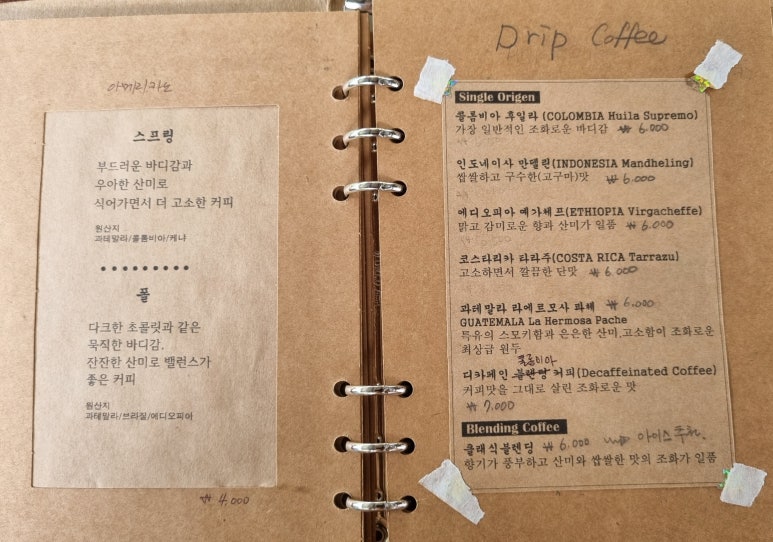 아메리카노
스프링
부드러운 바디감과
우아한 산미로
식어가면서 더 고소한 커피
원산지
과테말라/콜롬비아/케냐
폴
다크한 초콜릿과 같은
묵직한 바디감.
잔잔한 산미로 밸런스가
좋은 커피
원산지
과테말라/브라질/에디오피아
₩ 4,000
Drip Coffee
Single Origen
콜롬비아 후일라 (COLOMBIA Huila Supremo)
가장 일반적인 조화로운 바디감 ₩ 6,000
인도네이사 만델린(INDONESIA Mandheling)
쌉쌀하고 구수한(고구마)맛 ₩ 6,000
에디오피아 예가체프(ETHIOPIA Virgacheffe)
맑고 감미로운 향과 산미가 일품 ₩ 6,000
코스타리카 타라주(COSTA RICA Tarrazu)
고소하면서 깔끔한 단맛 ₩ 6,000
과테말라 라에르모사 파체 ₩ 6,000
GUATEMALA La Hermosa Pache
특유의 스모키함과 은은한 산미.고소함이 조화로운
최상급 원두
콜롬비아
디카페인 블렌딩 커피(Decaffeinated Coffee)
커피맛을 그대로 살린 조화로운 맛
₩ 7,000
Blending Coffee
클래식블렌딩 ₩ 6,000 아이스 추천.
향기가 풍부하고 산미와 쌉쌀한 맛의 조화가 일품